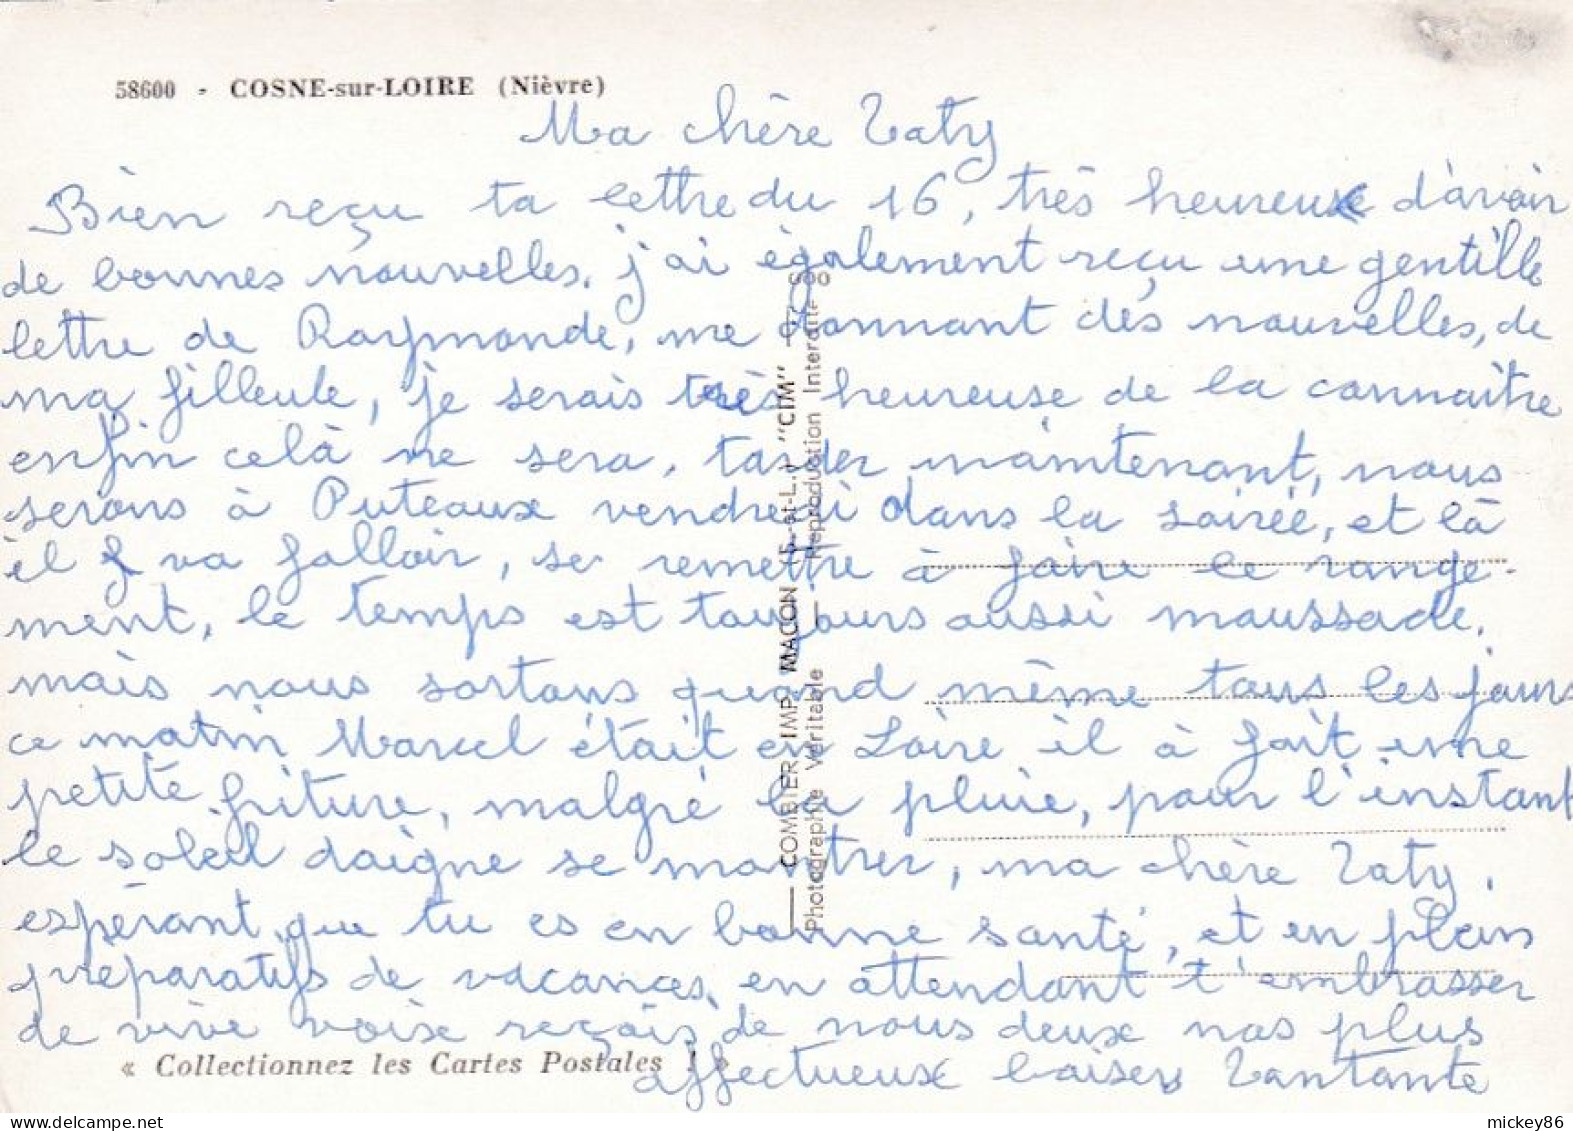 58600 - COSNE-sur-LOIRE (Nièvre)
Ma chère Taty
Bien reçu ta lettre du 16, très heureuse d'avoir
de bonnes nouvelles. j'ai également reçu une gentille
lettre de Raymonde, me donnant des nouvelles, de
ma filleule, je serais très heureuse de la connaître
enfin celà ne sera, tarder maintenant, nous
serons à Puteaux vendredi dans la soirée, et là
il va falloir, se remettre à faire le range-
ment, le temps est toujours aussi maussade.
mais nous sortons quand même tous les jours
ce matin Marcel était en Loire il à fait une
petite friture, malgré la pluie, pour l'instant
le soleil daigne se montrer, ma chère Taty,
espérant, que tu es en bonne santé, et en plein
préparatifs de vacances, en attendant t'embrasser
de vive voix reçois de nous deux nos plus
affectueux baisers Tantante
« Collectionnez les Cartes Postales ! »
COMBIER IMP. MACON (S.-et-L.) "CIM"
Photographie Véritable — Reproduction Interdite
mickey86